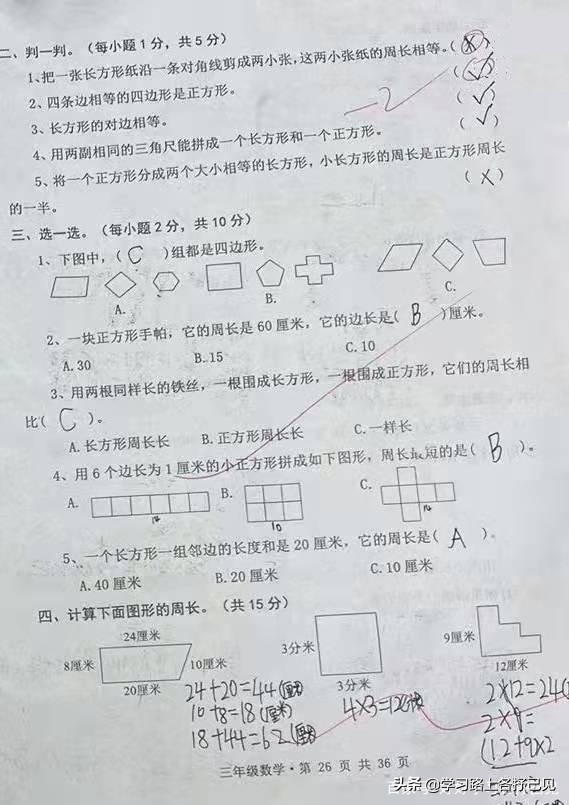 二、判一判。（每小题1分，共5分）
1、把一张长方形纸沿一条对角线剪成两小张，这两小张纸的周长相等。（×）
2、四条边相等的四边形是正方形。（ ）
－2
3、长方形的对边相等。（✓）
4、用两副相同的三角尺能拼成一个长方形和一个正方形。（✓）
5、将一个正方形分成两个大小相等的长方形，小长方形的周长是正方形周长
的一半。（×）
三、选一选。（每小题2分，共10分）
1、下图中，（C）组都是四边形。
A. B. C.
2、一块正方形手帕，它的周长是60厘米，它的边长是（B）厘米。
A.30 B.15 C.10
3、用两根同样长的铁丝，一根围成长方形，一根围成正方形，它们的周长相
比（C）。
A.长方形周长长 B.正方形周长长 C.一样长
4、用6个边长为1厘米的小正方形拼成如下图形，周长最短的是（B）。
A. B. C.
14 10 14
5、一个长方形一组邻边的长度和是20厘米，它的周长是（A）。
A.40厘米 B.20厘米 C.10厘米
四、计算下面图形的周长。（共15分）
24厘米
8厘米 10厘米 3分米 9厘米
20厘米 3分米 12厘米
24+20=44(厘米)
10+8=18(厘米)
18+44=62(厘米)
4×3=12(分米)
2×12=24
2×9=
(12+9×2
三年级数学·第 26 页 共 36 页
头条 @学习路上各抒己见